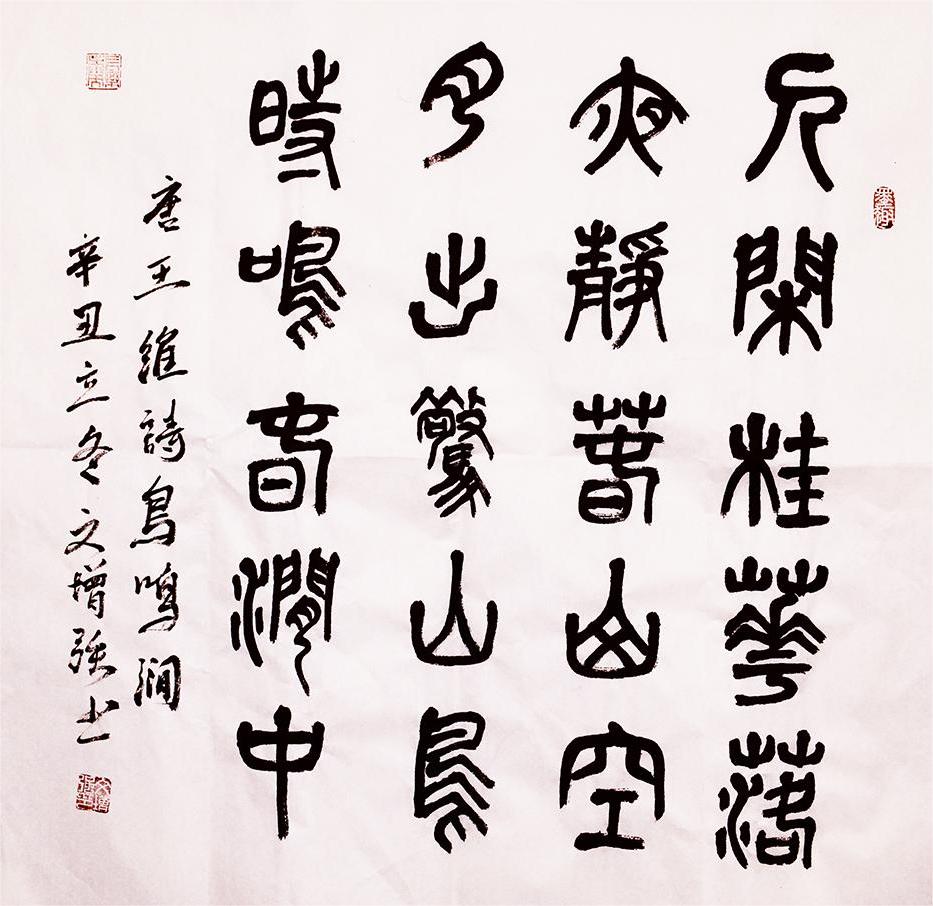 人閑桂花落
夜靜萅山空
月出驚山鳥
時鳴萅澗中
唐王維詩鳥鳴澗
辛丑立冬文增強書